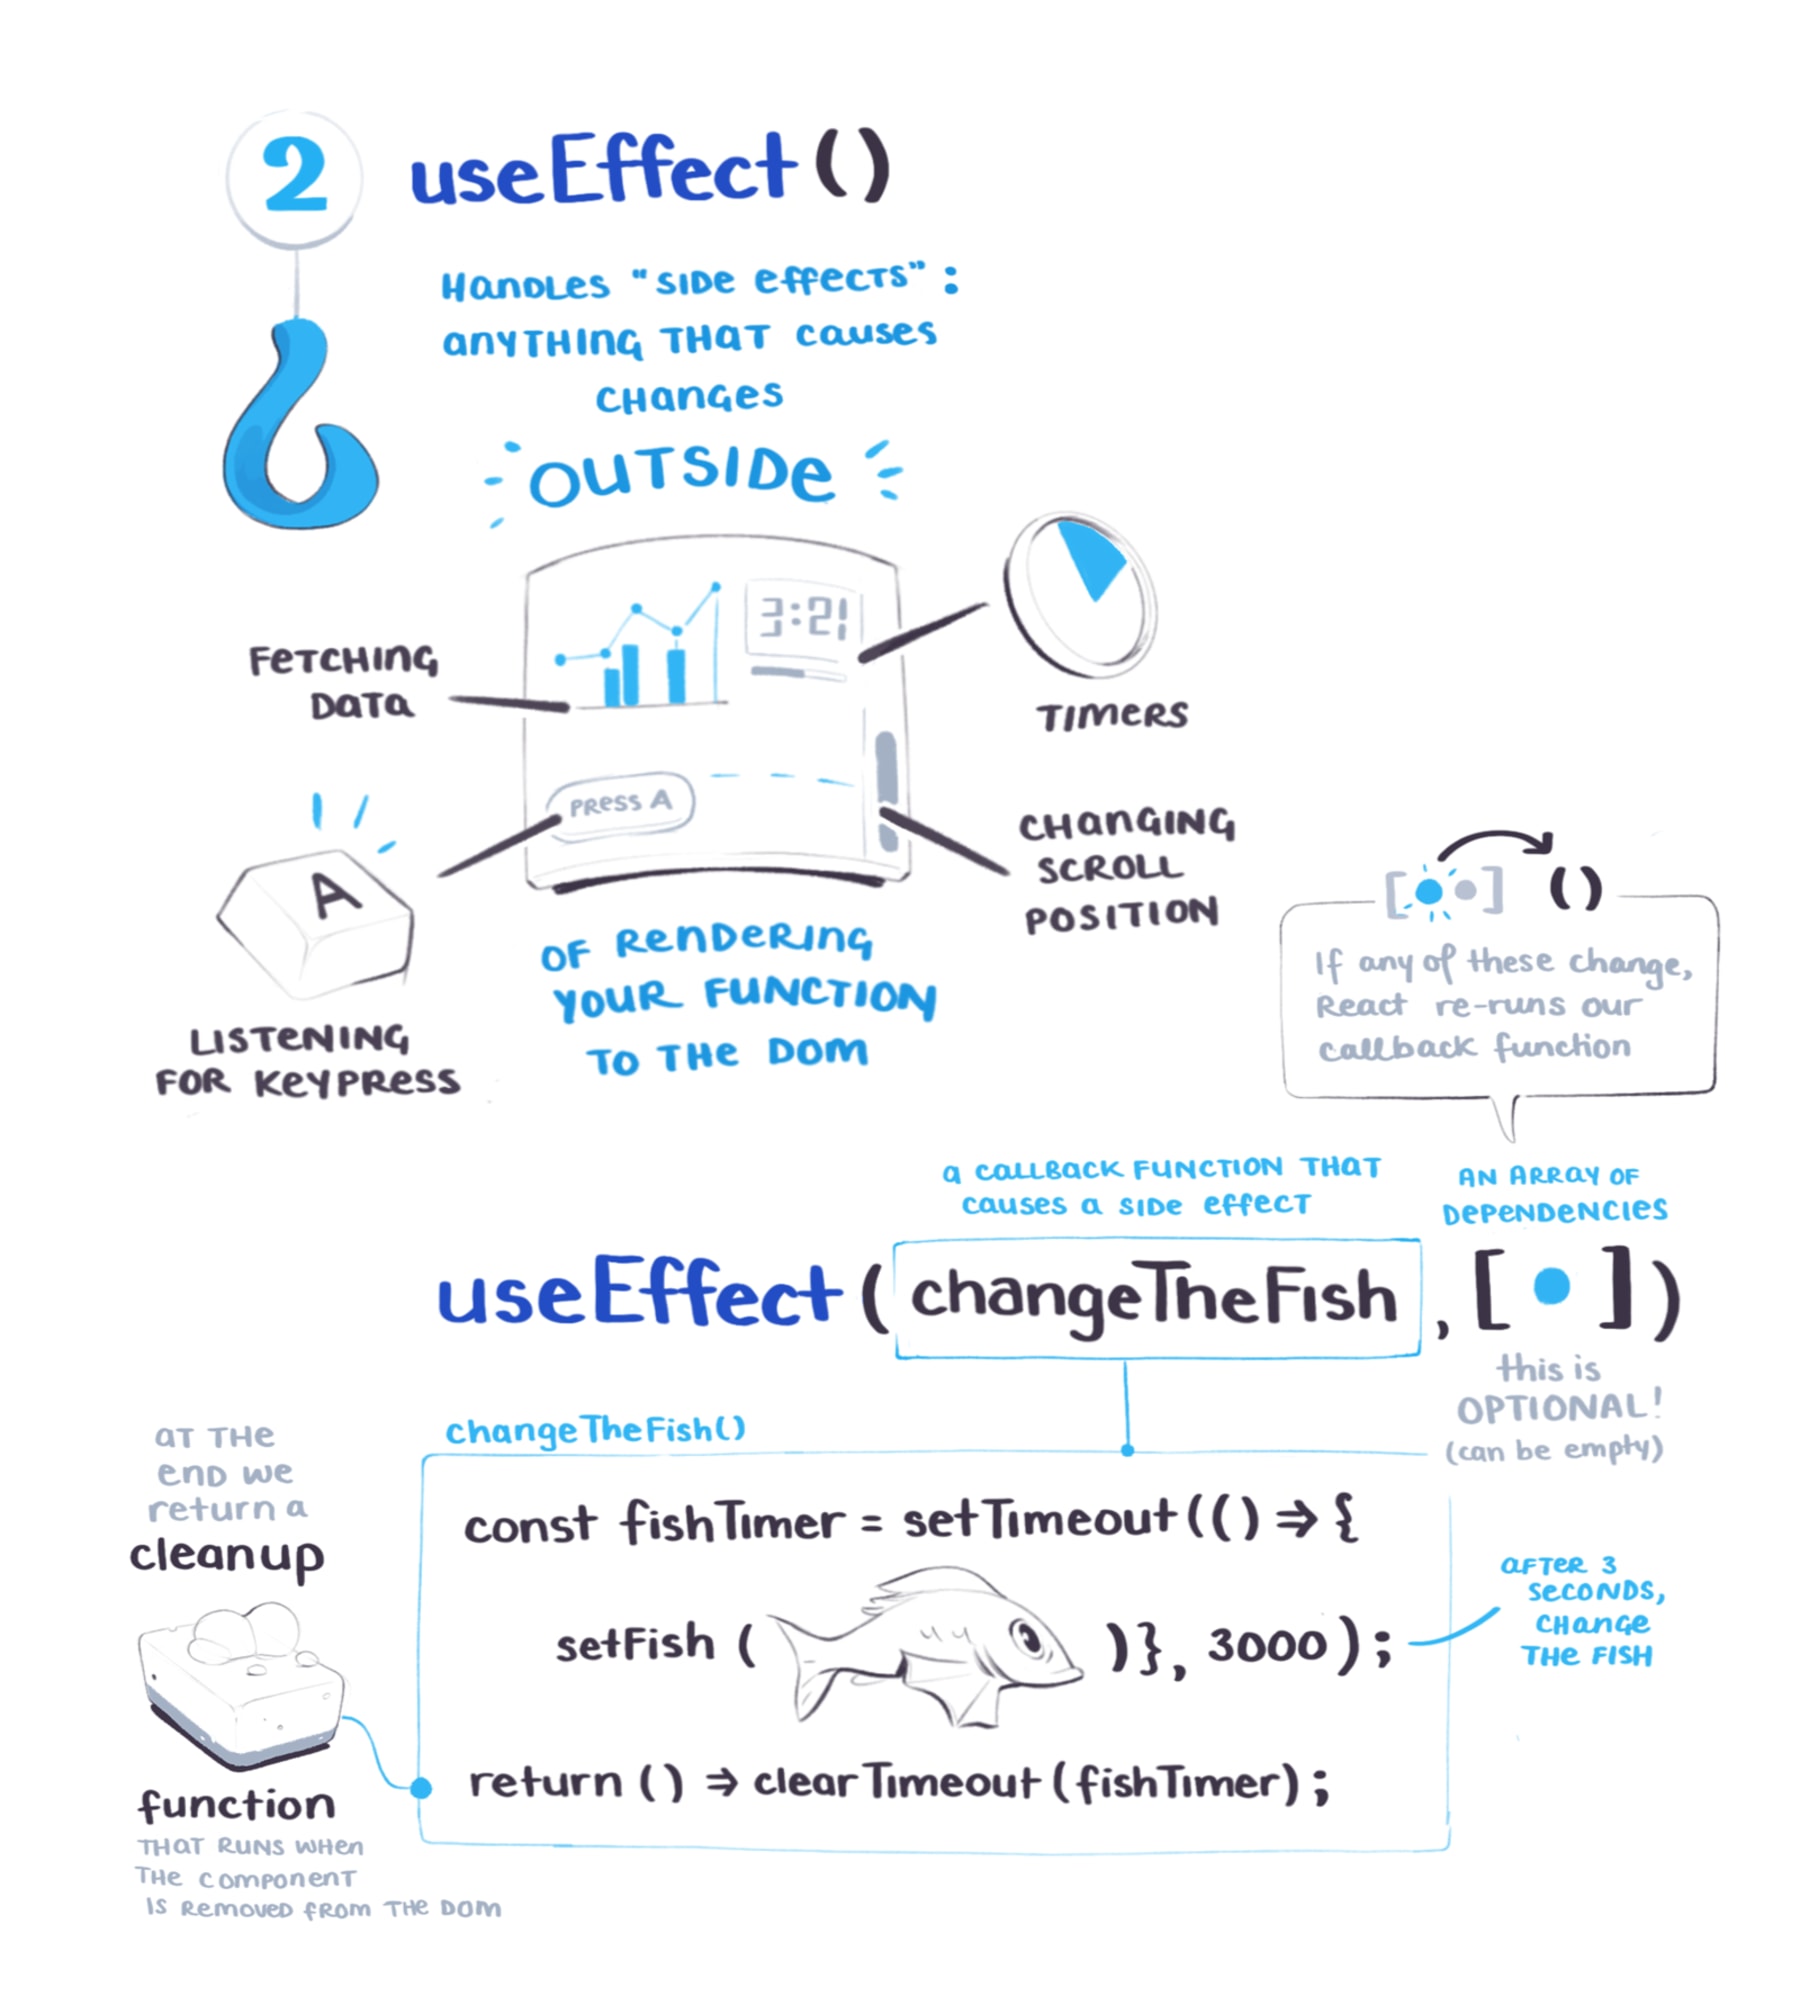 2
useEffect()
Handles "side effects":
anything that causes
changes
OUTSIDE
3:21
Fetching
Data
Timers
Press A
A
Changing
Scroll
Position
Listening
for keypress
of rendering
your function
to the DOM
[ ] ()
If any of these change,
React re-runs our
callback function
a callback function that
causes a side effect
an array of
dependencies
useEffect( changeTheFish , [ • ])
this is
OPTIONAL!
(can be empty)
changeTheFish()
at the
end we
return a
cleanup
function
that runs when
the component
is removed from the DOM
const fishTimer = setTimeout(() => {
setFish ( )}, 3000);
after 3
seconds,
change
the fish
return () => clearTimeout(fishTimer);